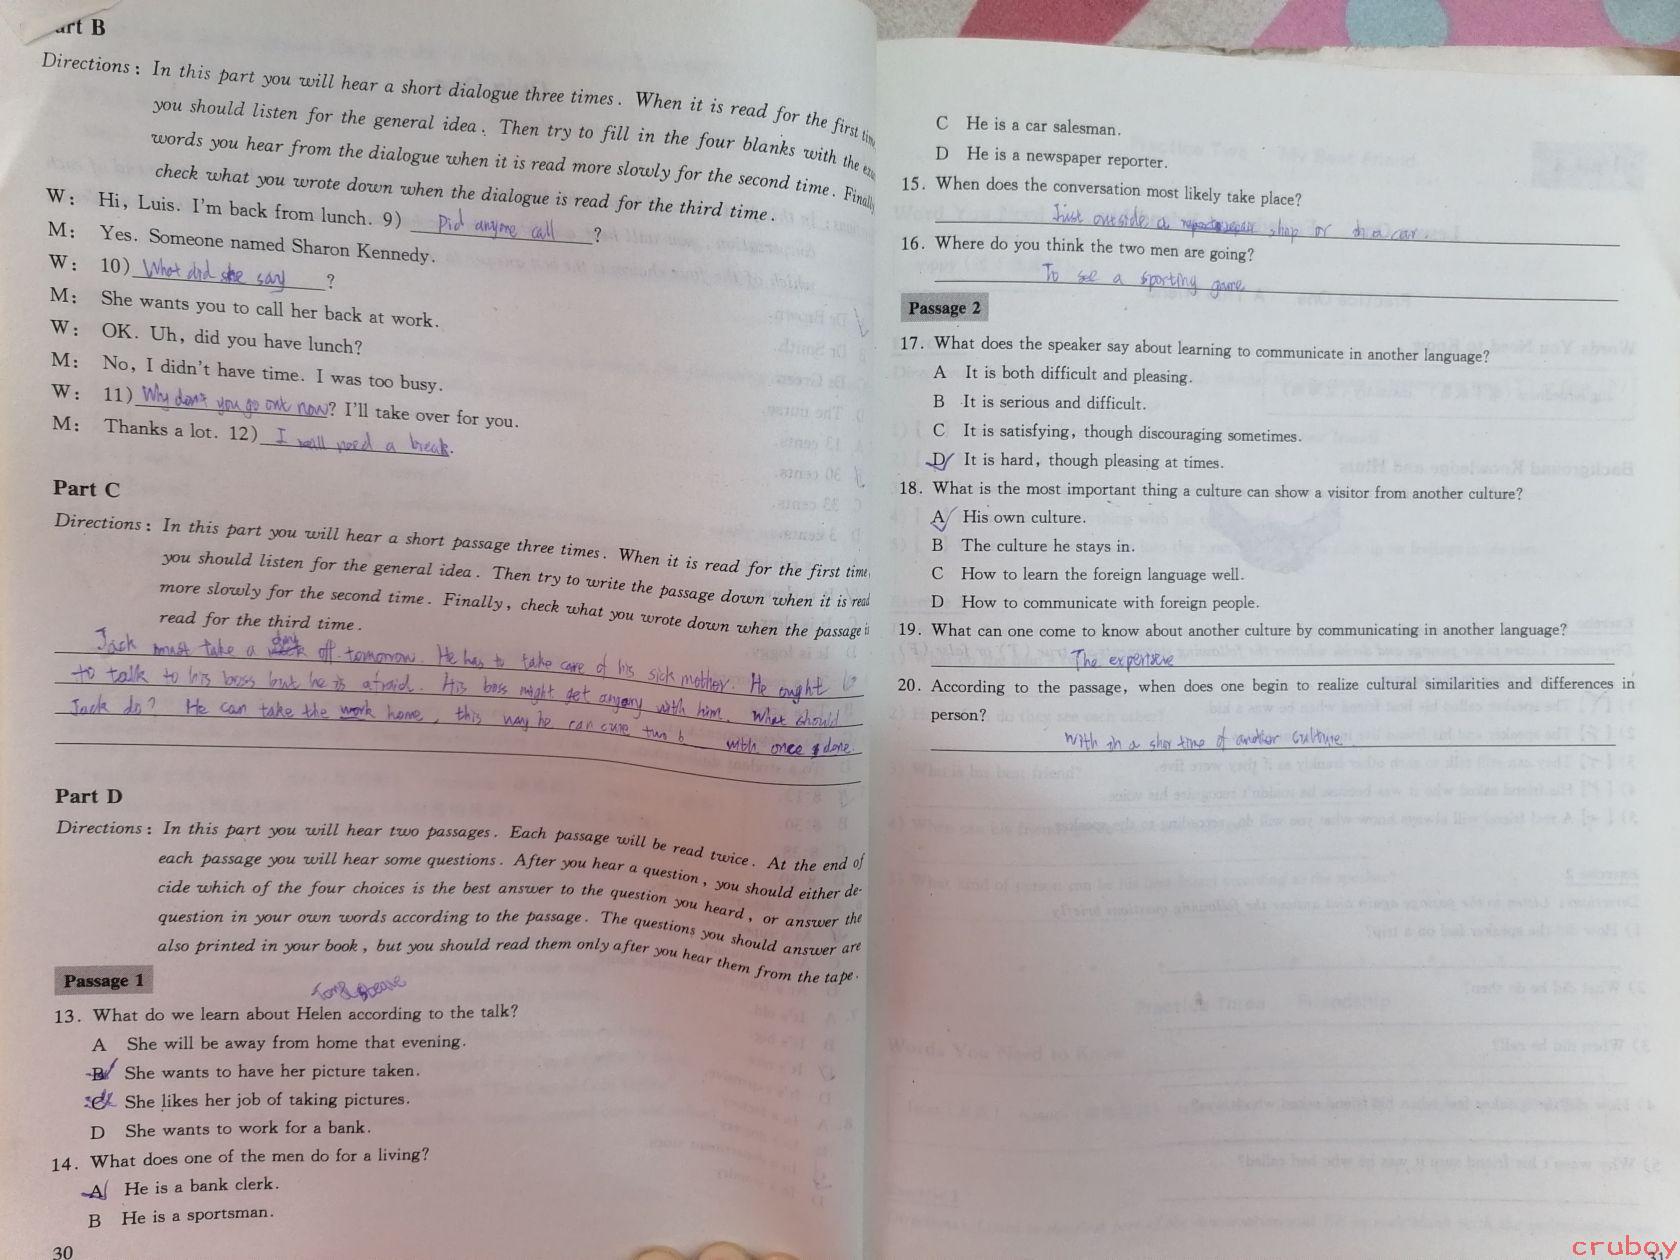 art B
Directions: In this part you will hear a short dialogue three times. When it is read for the first
you should listen for the general idea. Then try to fill in the four blanks with the
words you hear from the dialogue when it is read more slowly for the second time. Finally
check what you wrote down when the dialogue is read for the third time.
W: Hi, Luis. I'm back from lunch. 9) Did anyone call ?
M: Yes. Someone named Sharon Kennedy.
W: 10) What did she say ?
M: She wants you to call her back at work.
W: OK. Uh, did you have lunch?
M: No, I didn't have time. I was too busy.
W: 11) Why don't you go out now? I'll take over for you.
M: Thanks a lot. 12) I need a break.
Part C
Directions: In this part you will hear a short passage three times. When it is read for the first time
you should listen for the general idea. Then try to write the passage down when it is read
more slowly for the second time. Finally, check what you wrote down when the passage i
read for the third time.
Jack must take a day off tomorrow. He has to take care of his sick mother. He ought
to talk to his boss but he is afraid. His boss might get angry with him. What should
Jack do? He can take the work home, this way he can cure two b with once done.
Part D
Directions: In this part you will hear two passages. Each passage will be read twice. At the end of
each passage you will hear some questions. After you hear a question, you should either de-
cide which of the four choices is the best answer to the question you heard, or answer the
question in your own words according to the passage. The questions you should answer are
also printed in your book, but you should read them only after you hear them from the tape.
Passage 1
13. What do we learn about Helen according to the talk?
A She will be away from home that evening.
B She wants to have her picture taken.
C She likes her job of taking pictures.
D She wants to work for a bank.
14. What does one of the men do for a living?
A He is a bank clerk.
B He is a sportsman.
30
C He is a car salesman.
D He is a newspaper reporter.
15. When does the conversation most likely take place?
Just outside a repair shop or in a car.
16. Where do you think the two men are going?
To see a sporting game
Passage 2
17. What does the speaker say about learning to communicate in another language?
A It is both difficult and pleasing.
B It is serious and difficult.
C It is satisfying, though discouraging sometimes.
D It is hard, though pleasing at times.
18. What is the most important thing a culture can show a visitor from another culture?
A His own culture.
B The culture he stays in.
C How to learn the foreign language well.
D How to communicate with foreign people.
19. What can one come to know about another culture by communicating in another language?
The
20. According to the passage, when does one begin to realize cultural similarities and differences in
person?
With in a shor time of another culture
31
cruboy